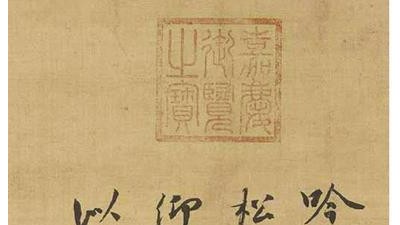 嘉慶
御覽
之寶
吟
松
以